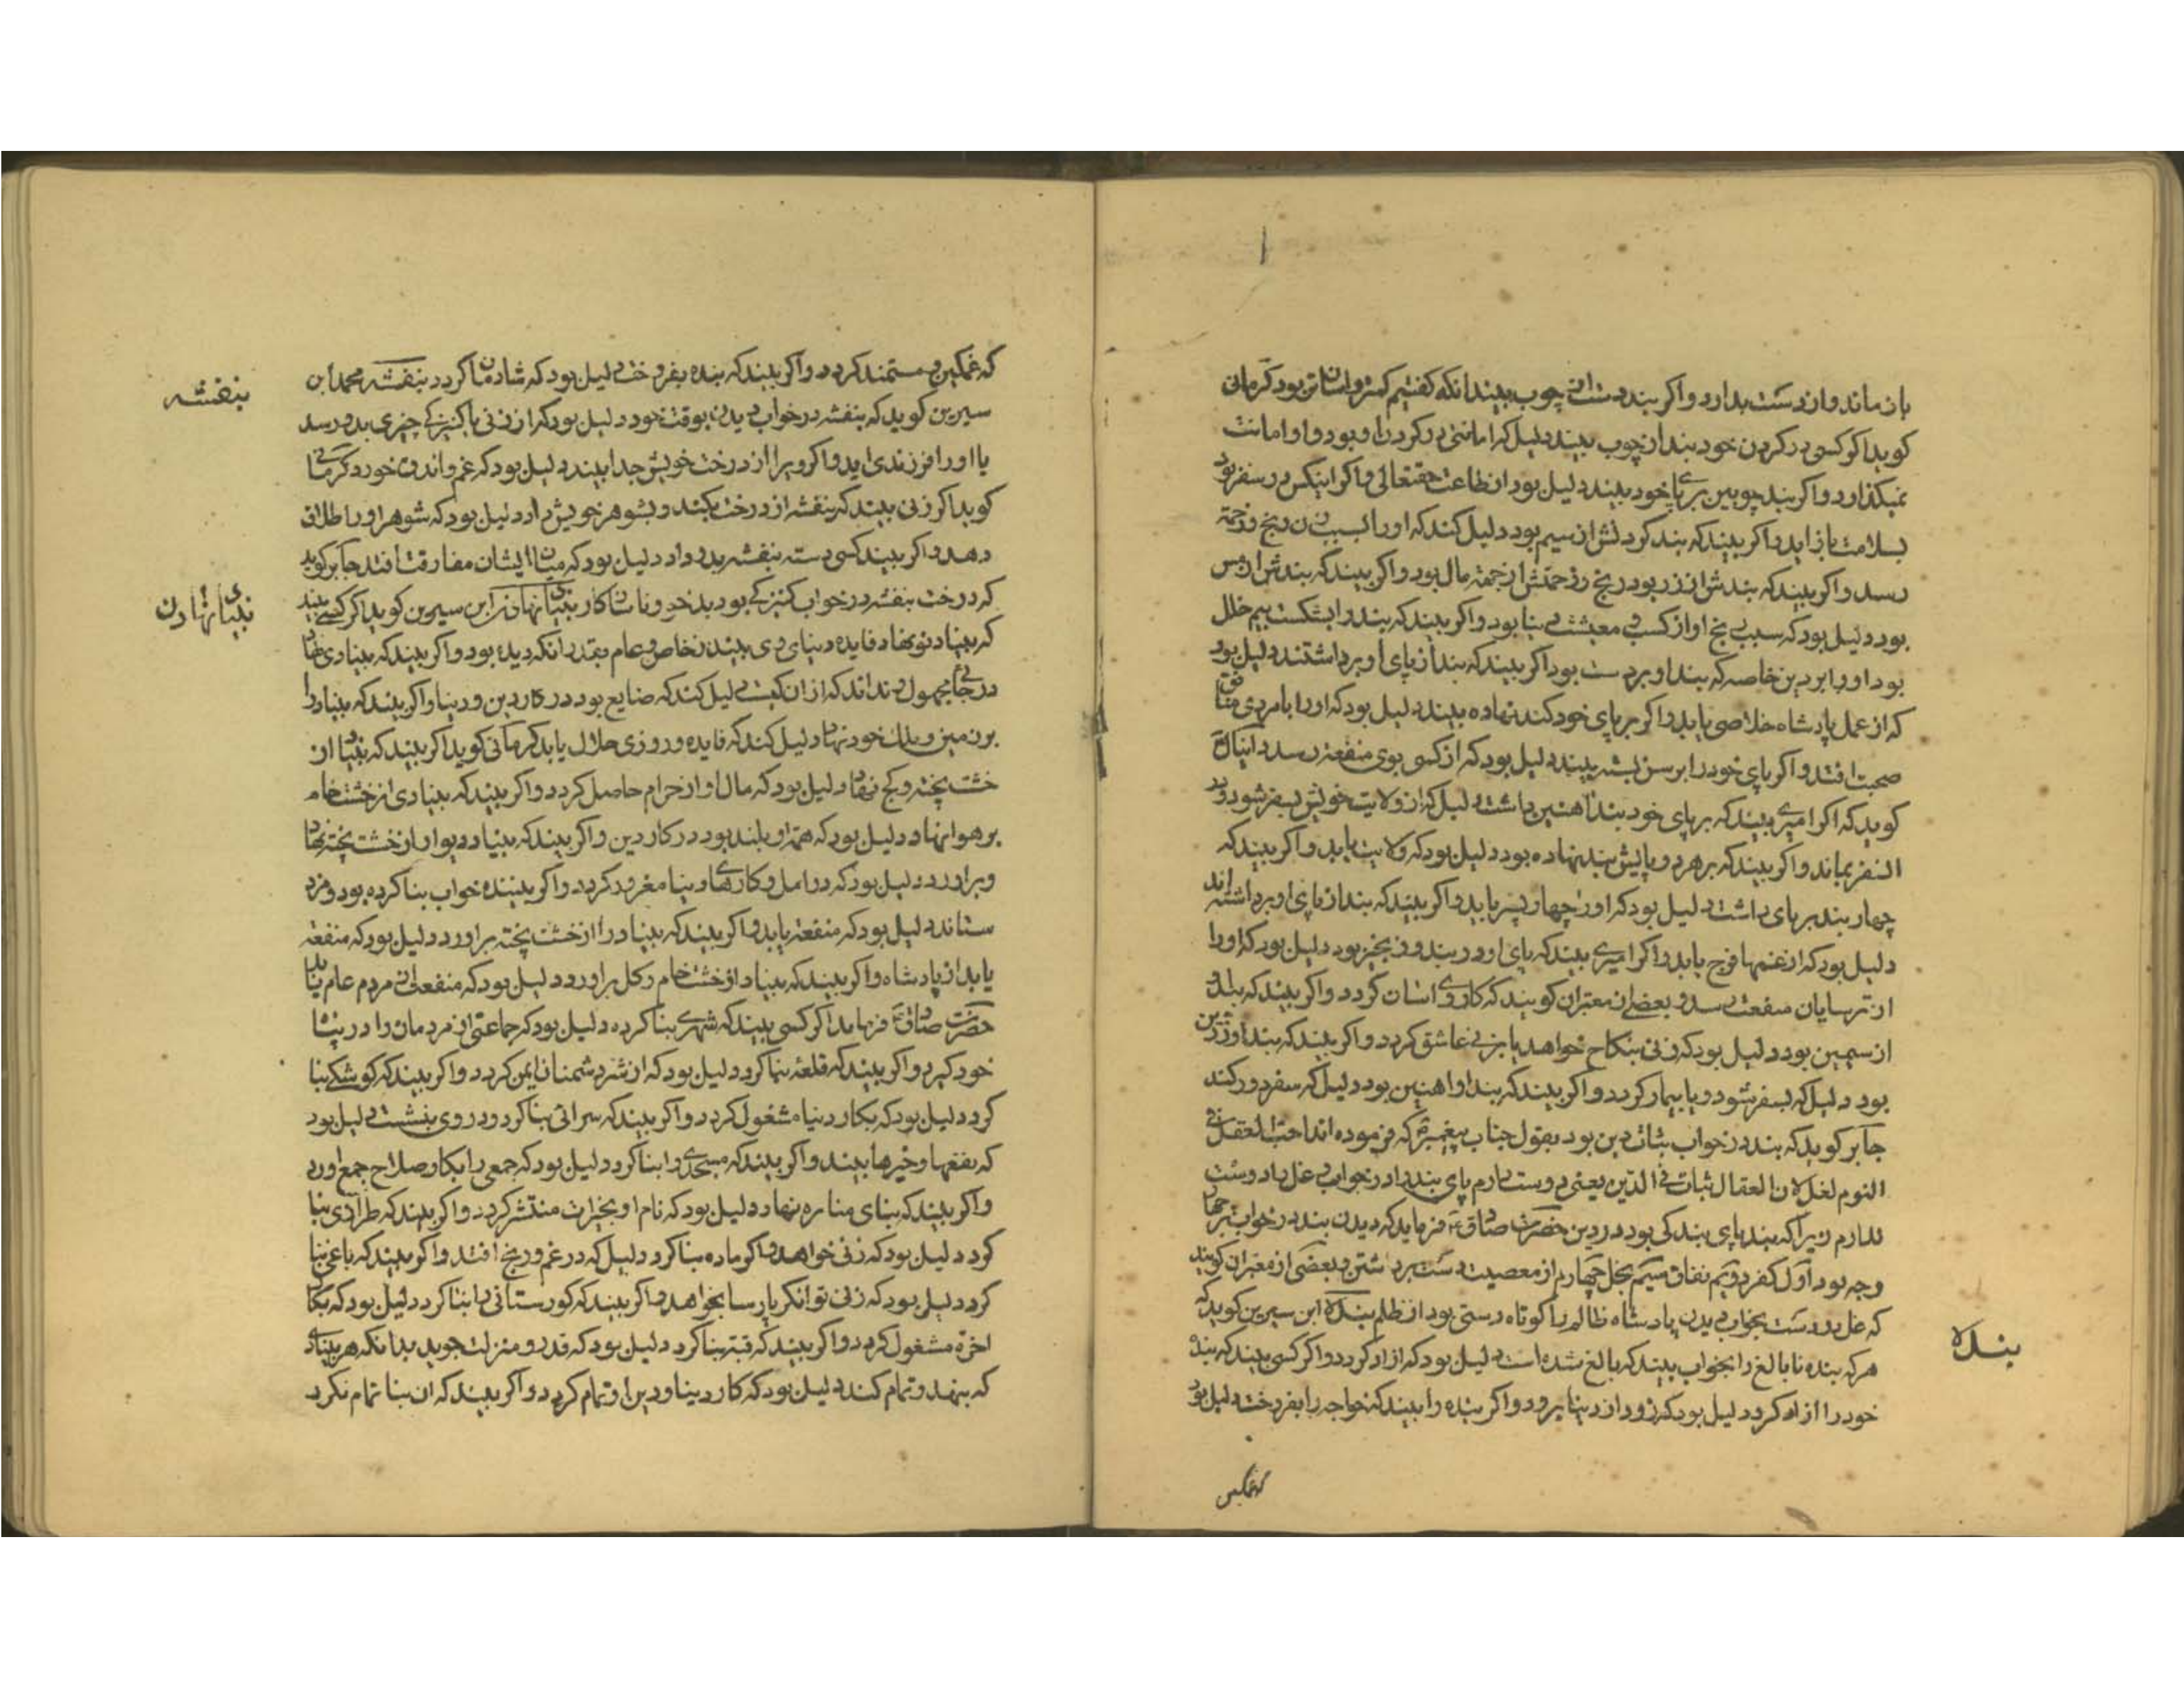 باز ماند و از دست بدارد و اگر بند دستش از چوب بیند انکه کفتیم کمتر و اسان تر بود کرمانی
کوید اکر کسی در کردن خود بند از چوب بیند دلیل که امانتی در کردن او بود و او امانت
نمیکذارد و اکر بند چوبین بر پا خود بیند دلیل بود از طاعت حقتعالی و اکر اینکس در سفر بود
بسلامت باز اید و اکر بیند که بند کردنش از سیم بود دلیل کند که او را بسبب زن رنج و زحمة
رسد و اکر بیند که بندش از زر بود رنج و زحمتش از جهة مال بود و اکر بیند که بندش از مس
بود دلیل بود که سبب رنج او از کسب و معیشت دینا بود و اکر بیند که بند را بشکست بیم خلل
بود او را بر دین خاصه که بند او بر دست بود اکر بیند که بند از پای او برداشتند دلیل بود
که از عمل پادشاه خلاصی یابد و اکر بر پای خود کند نهاده بیند دلیل بود که او را با مردی منافق
صحبت افتد و اکر پای خود را بر سن بسته بیند دلیل بود که از کسی بوی منفعة رسد دانیال
کوید که اکر امیری بیند که بر پای خود بند اهنین داشت دلیل که از ولایت خویش بسفر شود و در
السفر بماند و اکر بیند که بر هر دو پایش بند نهاده بود دلیل بود که ولایت یابد و اکر بیند که
چهار بند بر پای داشت دلیل بود که او را چهار پسر یابد و اکر بیند که بند از پای او برداشته اند
دلیل بود که از غمها فرج یابد و اکر امیری بیند که پای او در بند و زنجیر بود دلیل بود که او را
از ترسایان منفعت رسد و بعضی از معبران کویند که کار وی اسان کردد و اکر بیند که بند
از سیمین بود دلیل بود که زنی بنکاح خواهد یا بزنی عاشق کردد و اکر بیند که بند او زرین
بود دلیل که بسفر شود و یا بیمار کردد و اکر بیند که بند او اهنین بود دلیل که سفر دور کند
جابر کوید که بند در خواب ثبات دین بود بقول جناب پیغمبر که فرموده اند احب العقل فی
النوم لغل لان العقال ثبات فی الدین یعنی دوست دارم پای بند را در خواب و غل را دوست
ندارم زیرا که بند پای بندکی بود در دین حضرت صادق فرماید که دیدن بند در خواب بر چهار
وجه بود اول کفر دویم نفاق سیم بخل چهارم از معصیت دست برداشتن و بعضی از معبران کویند
که غل در دست بخواب دیدن پادشاه ظالم را کوتاه دستی بود از ظلم بنده ابن سیرین کوید که
هر که بنده نا بالغ را بخواب بیند که بالغ شده است دلیل بود که ازاد کردد و اکر کسی بیند که بنده
خود را ازاد کرد دلیل بود که زود از دینا برود و اکر بنده را بیند که خواجه را بفروخت دلیل بود
بنده
که غمکین
که غمکین و مستمند کردد و اکر بیند که بنده بفروخت دلیل بود که شادمان کردد بنفشه محمد ابن
سیرین کوید که بنفشه در خواب دیدن بوقت خود دلیل بود که از زنی یا کنیزکی چیزی بدو رسد
یا او را فرزندی اید و اکر ویرا از درخت خویش جدا بیند دلیل بود که غم و اندوه خورد کرمانی
کوید اکر زنی بیند که بنفشه از درخت بکند و بشوهر خویش داد دلیل بود که شوهر او را طلاق
دهد و اکر بیند کسی دسته بنفشه بدو داد دلیل بود که میان ایشان مفارقت افتد جابر کوید
که درخت بنفشه در خواب کنیزکی بود بدخو و ناسازکار بنیاد نهادن ابن سیرین کوید اکر کسی بیند
که بنیاد نو نهاد فایده دینای وی بیند از خاص و عام بقدر انکه دیده بود و اکر بیند که بنیادی نهاد
در جائی مجهول نداند که از ان کیست دلیل کند که ضایع بود در کار دین و دینا و اکر بیند که بنیاد را
بر زمین و ملک خود نهاد دلیل کند که فایده و روزی حلال یابد کرمانی کوید اکر بیند که بنیاد از
خشت پخته و کچ نهاد دلیل بود که مال او از حرام حاصل کردد و اکر بیند که بنیادی از خشت خام
بر هوا نهاد دلیل بود که همة او بلند بود در کار دین و اکر بیند که بنیاد دیوار از خشت پخته نهاد
و براورد دلیل بود که در امل و کارهای دینا مغرور کردد و اکر بیننده خواب بنا کرده بود و مزد
ستاند دلیل بود که منفعة یابد و اکر بیند که بنیاد را از خشت پخته براورد دلیل بود که منفعة
یابد از پادشاه و اکر بیند که بنیاد از خشت خام و کل براورد دلیل بود که منفعة از مردم عام یابد
حضرت صادق فرماید اکر کسی بیند که شهری بنا کرده دلیل بود که جماعتی از مردمان را در پناه
خود کیرد و اکر بیند که قلعه بنا کرد دلیل بود که از شر دشمنان ایمن کردد و اکر بیند که کوشکی بنا
کرد دلیل بود که بکار دینا مشغول کردد و اکر بیند که سرائی بنا کرد و در وی بنشست دلیل بود
که نفعها و خیرها بیند و اکر بیند که مسجدی را بنا کرد دلیل بود که جمعی را بکار صلاح جمع اورد
و اکر بیند که بنای مناره نهاد دلیل بود که نام او بخیرات منتشر کردد و اکر بیند که بنا
کرد دلیل بود که زنی خواهد و اکر ماده بنا کرد دلیل که در غم و رنج افتد و اکر بیند که باغی بنا
کرد دلیل بود که زنی توانکر پارسا بخواهد و اکر بیند که کورستانی را بنا کرد دلیل بود که بکار
اخرة مشغول کردد و اکر بیند که قبه بنا کرد دلیل بود که قدر و منزلت جوید بدانکه هر بنیاد
که بنهد و تمام کند دلیل بود که کار دینا و دین او تمام کردد و اکر بیند که ان بنا تمام نکرد
بنفشه
بنیاد نهادن